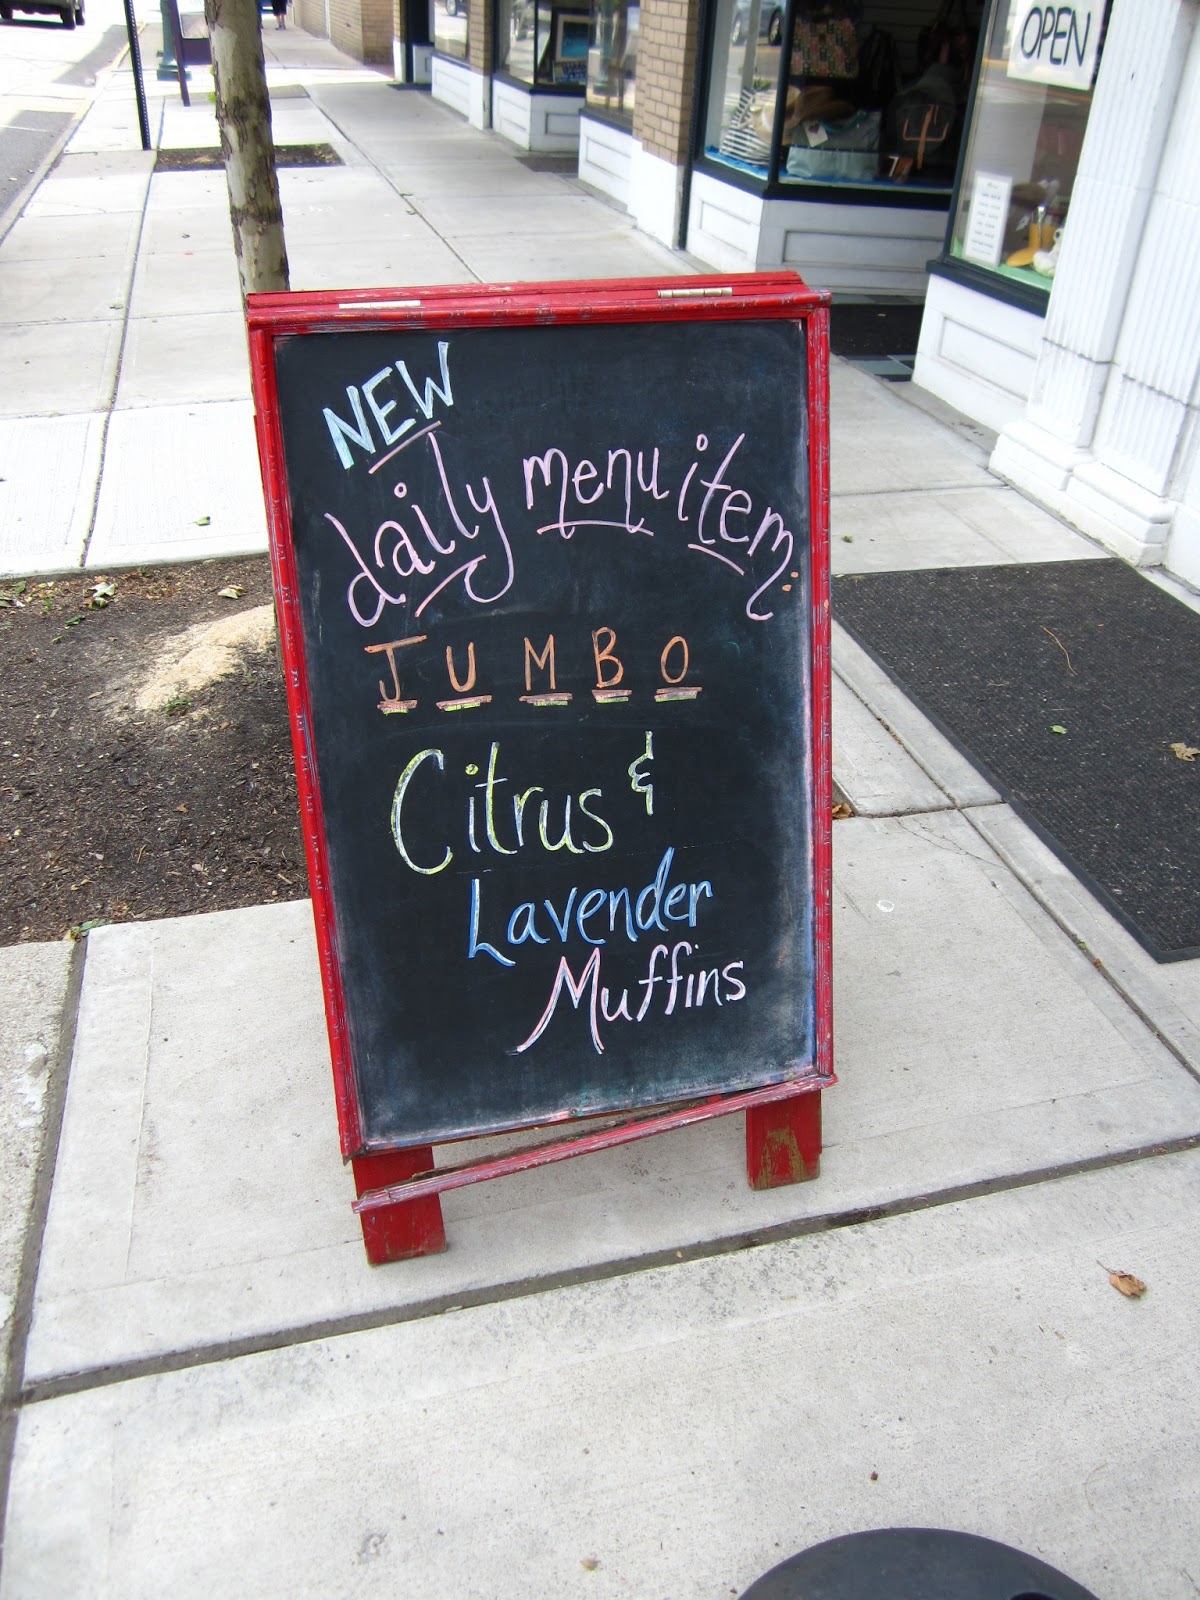 OPEN
NEW
daily menu item:
JUMBO
Citrus &
Lavender
Muffins